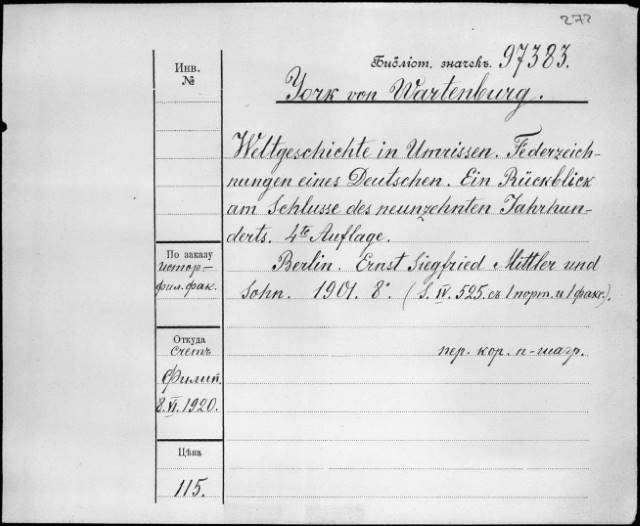 272
Библіот. значекъ. 97383.
Инв.
№
York von Wartenburg.
Weltgeschichte in Umrissen. Federzeich-
nungen eines Deutschen. Ein Rückblick
am Schlusse des neunzehnten Jahrhun-
derts. 4te Auflage.
Berlin. Ernst Siegfried Mittler und
Sohn. 1901. 8°. (S. IV. 525. съ 1 порт. и 1 факс.).
По заказу
истор-
фил. фак.
Откуда
Счетъ
Филип.
8.VI.1920.
пер. кор. п-шагр.
Цѣна
115.